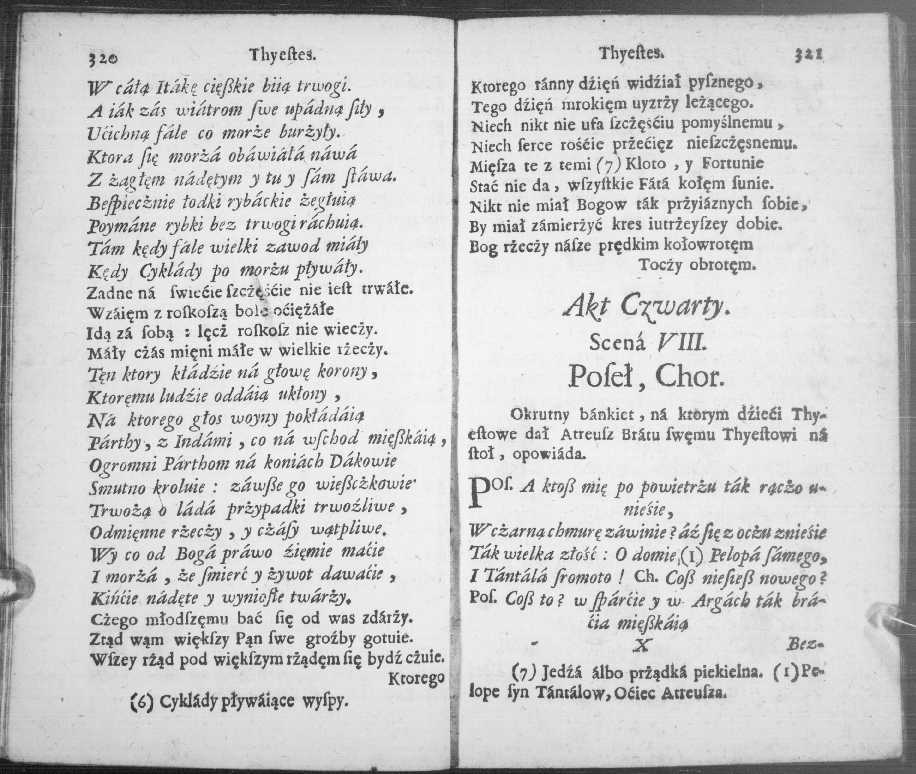 320 Thyeſtes.
W cáłą Itákę cięßkie biią trwogi.
A iák zás wiátrom ſwe upádną ſiły,
Ućichną fále co morże burżyły.
Ktora ſię morżá obáwiáłá náwá
Z żagłęm nádętym y tu y ſám ſtáwa.
Beſpiecżnie łodki rybáckie żegłuią
Poymáne rybki bez trwogi ráchuią.
Tám kędy fale wielki zawod miáły
Kędy Cyklády po morżu pływáły.
Zadne ná ſwiećie ſzcżęśćie nie ieſt trwáłe.
Wzáięm z roſkoſzą bole oćiężáłe
Idą zá ſobą : lęcż roſkoſz nie wiecży.
Máły cżás mięni máłe w wielkie rżecży.
Tęn ktory kłádźie ná głowę korony,
Ktoręmu ludźie oddáią ukłony,
Ná ktorego głos woyny pokłádáią
Párthy, z Indámi, co ná wſchod mięßkáią,
Ogromni Párthom ná koniách Dákowie
Smutno kroluie : záwße go wießcżkowie
Trwożą o ládá prżypadki trwożliwe,
Odmięnne rżecży, y cżáſy wątpliwe.
Wy co od Bogá práwo źięmie maćie
I morżá, że ſmierć y żywot dawaćie,
Kińćie nádęte y wynioſłe twárży.
Cżego młodſzęmu bać ſię od was zdárży.
Ztąd wąm więkſzy Pąn ſwe groźby gotuie.
Wſzey rżąd pod więkſzym rżądęm ſię bydź cżuie.
Ktorego
(6) Cyklády pływáiące wyſpy.
Thyeſtes. 321
Ktorego ránny dźięń widźiał pyſznego,
Tego dźięń mrokięm uyzrży leżącego.
Niech nikt nie ufa ſzcżęśćiu pomyślnemu,
Niech ſerce rośćie prżećięz nieſzcżęsnemu.
Mięſza te z temi (7) Kloto, y Fortunie
Stać nie da, wſzyſtkie Fátá kołęm ſunie.
Nikt nie miał Bogow ták prżyiáznych ſobie,
By miał zámierżyć kres iutrżeyſzey dobie.
Bog rżecży náſze prędkim kołowrotęm
Tocży obrotęm.
Akt Czwarty.
Scená VIII.
Poſeł, Chor.
Okrutny bánkiet, ná ktorym dźieći Thy-
eſtowe dał Atreuſz Brátu ſwęmu Thyeſtowi ná
ſtoł, opowiáda.
Poſ. A ktoß mię po powietrżu ták rącżo u-
nieśie,
W cżarną chmurę záwinie? áź ſię z ocżu znieśie
Ták wielka złość : O domie, (1) Pelopá ſámego,
I Tántálá ſromoto ! Ch. Coß nieśieß nowego?
Poſ. Coß to? w ſpárćie y w Argách ták brá-
ćia mięßkáią
X Bez-
(7) Jedźá álbo prżądká piekielna. (1) Pe-
lope ſyn Tántálow, Oćiec Atreuſza.